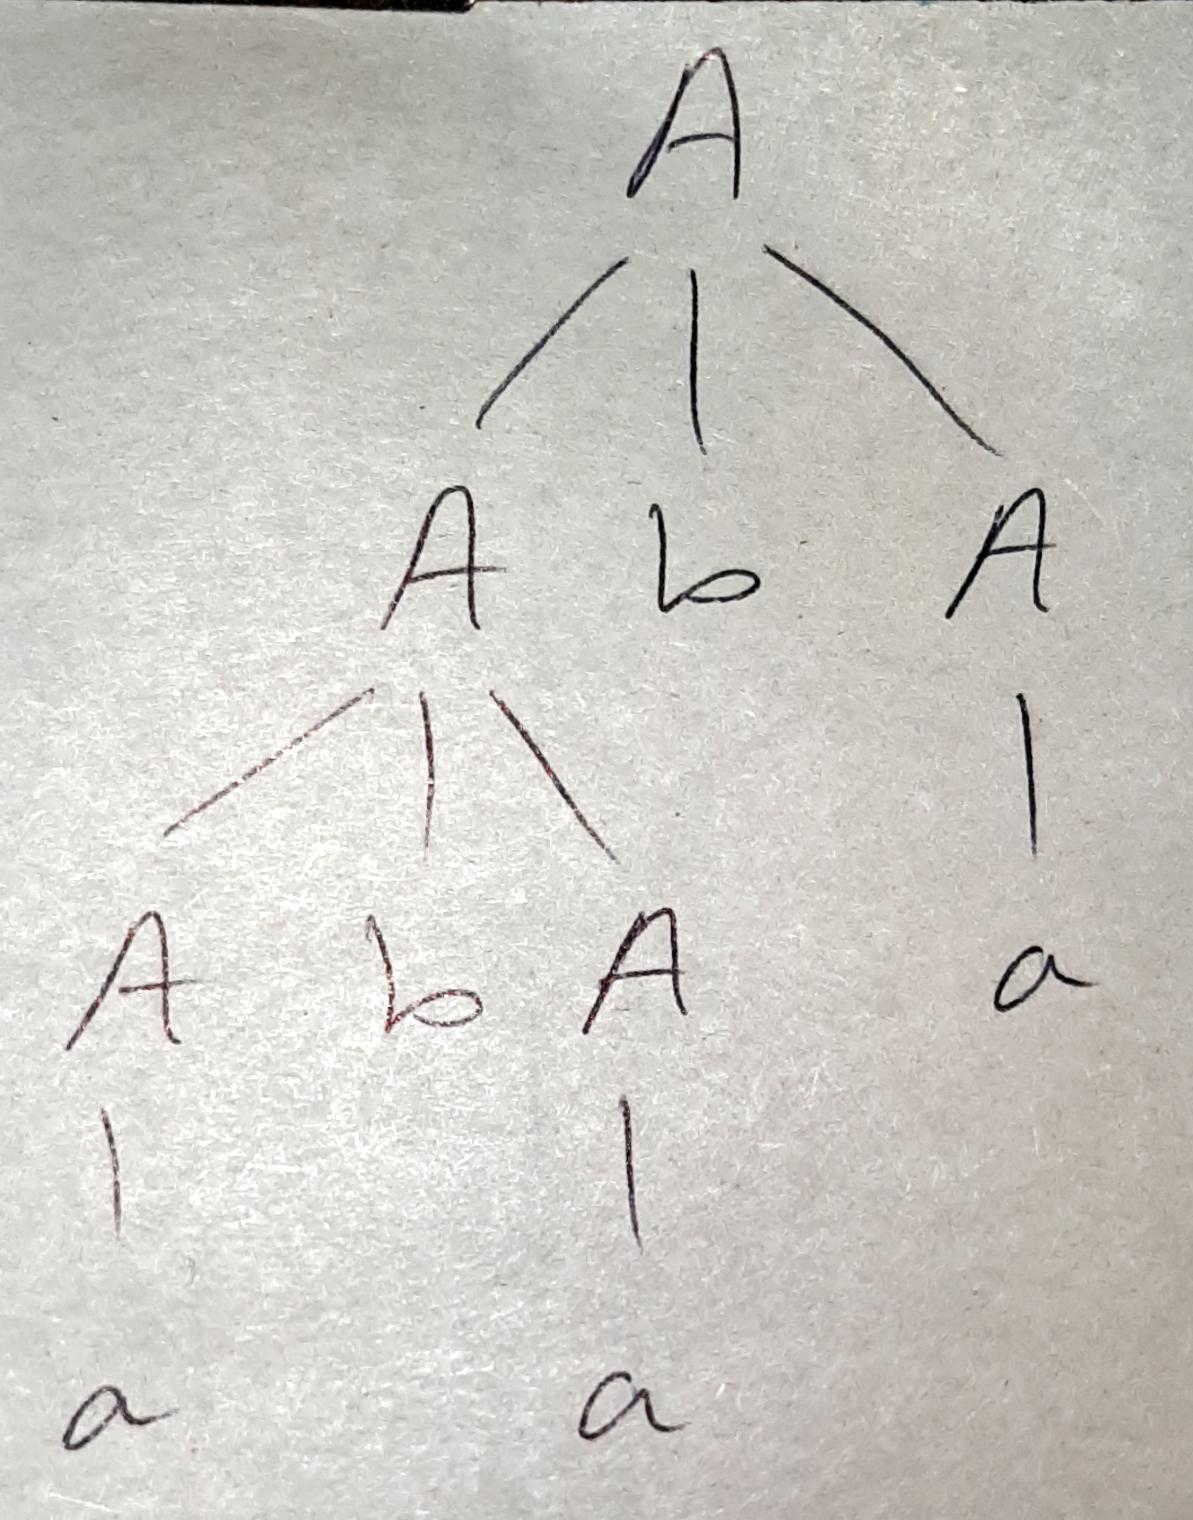 A
A b A
A b A a
a a